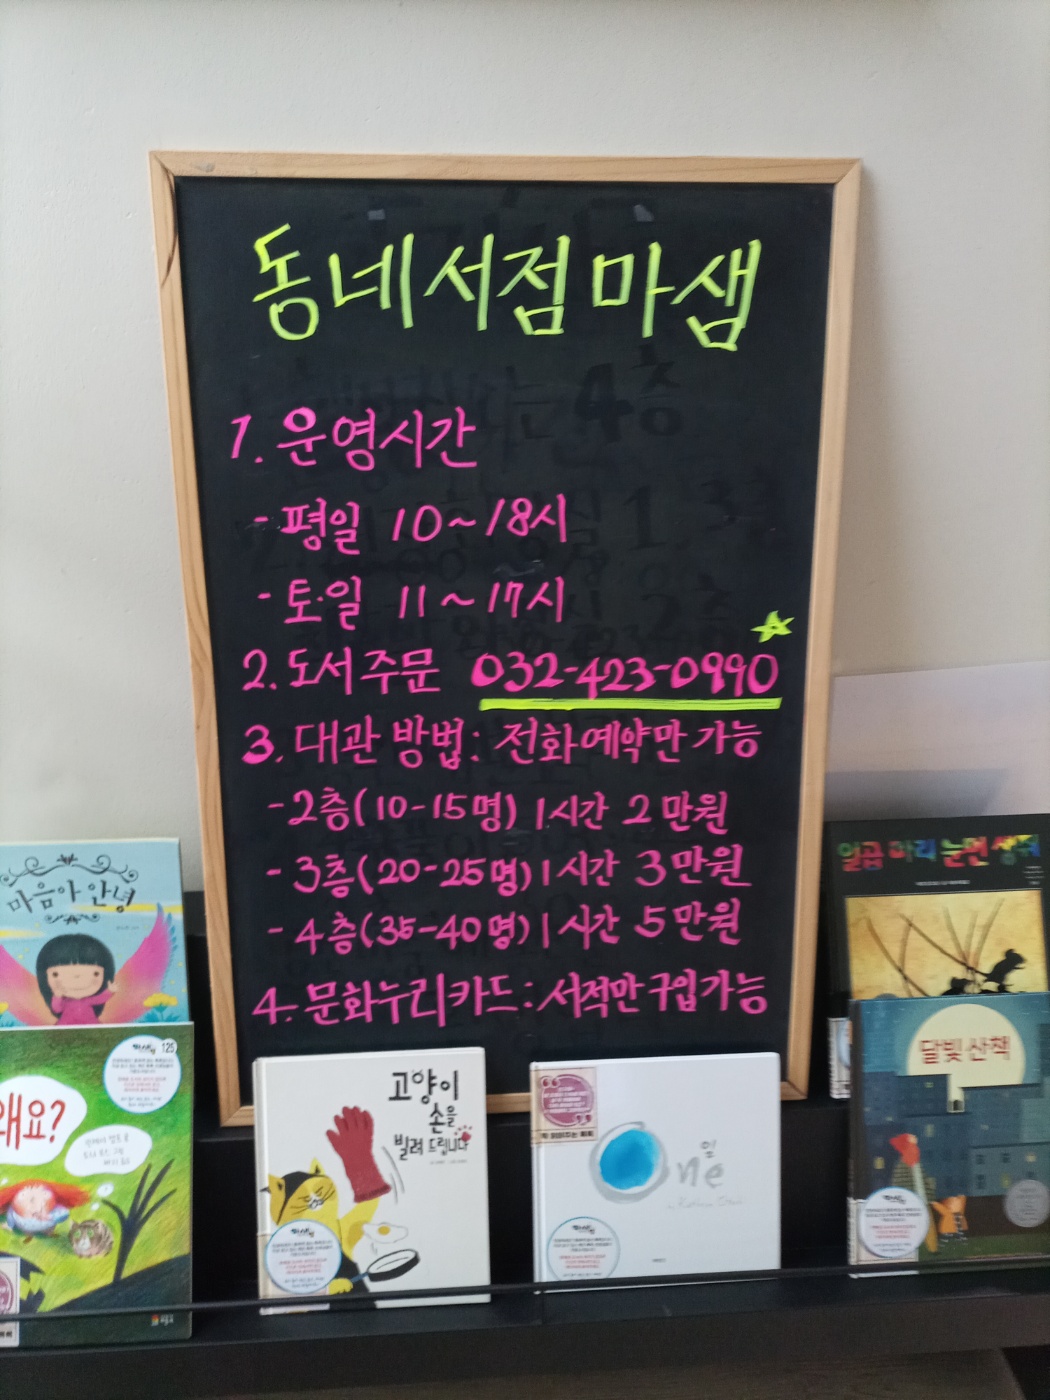 동네서점 마샘
1. 운영시간
- 평일 10~18시
- 토·일 11~17시
2. 도서 주문 032-423-0990
3. 대관 방법: 전화예약만 가능
- 2층(10-15명) 1시간 2만원
- 3층(20-25명) 1시간 3만원
- 4층(35-40명) 1시간 5만원
4. 문화누리카드: 서적만 구입가능
마음아 안녕
왜요?
125
고양이
손을
빌려 드립니다
일
One
일곱 마리 눈먼 생쥐
달빛 산책